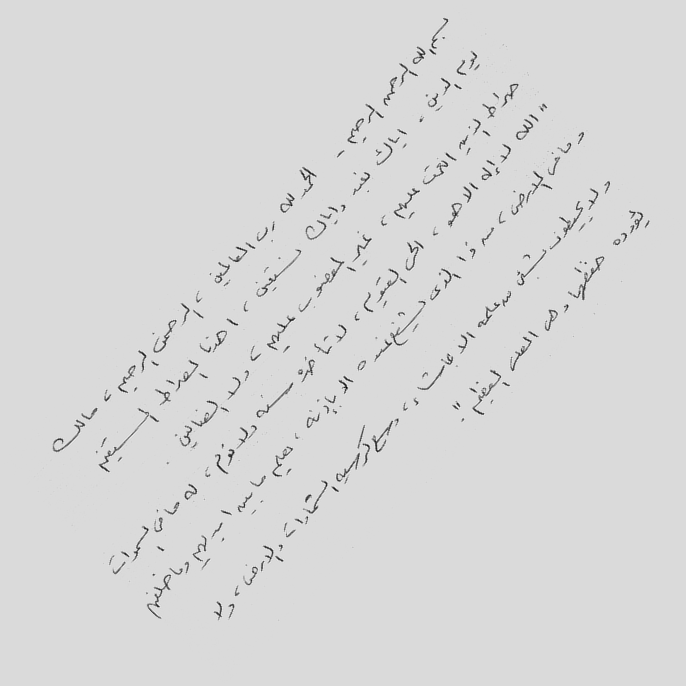 بسم الله الرحمن الرحيم - الحمد لله رب العالمين ، الرحمن الرحيم ، مالك
يوم الدين ، اياك نعبد واياك نستعين ، اهدنا الصراط المستقيم
صراط الذين انعمت عليهم ، غير المغضوب عليهم ، ولا الضالين .
" الله لا إله الا هو ، الحي القيوم ، لا تأخذه سنه ولا نوم ، له ما في السموات
وما في الارض ، من ذا الذي يشفع عنده الا بإذنه ، يعلم ما بين ايديهم وما خلفهم
ولا يحيطون بشئ من علمه الا بما شاء ، وسع كرسيه السماوات والارض ، ولا
يؤوده حفظهما وهو العلي العظيم " .